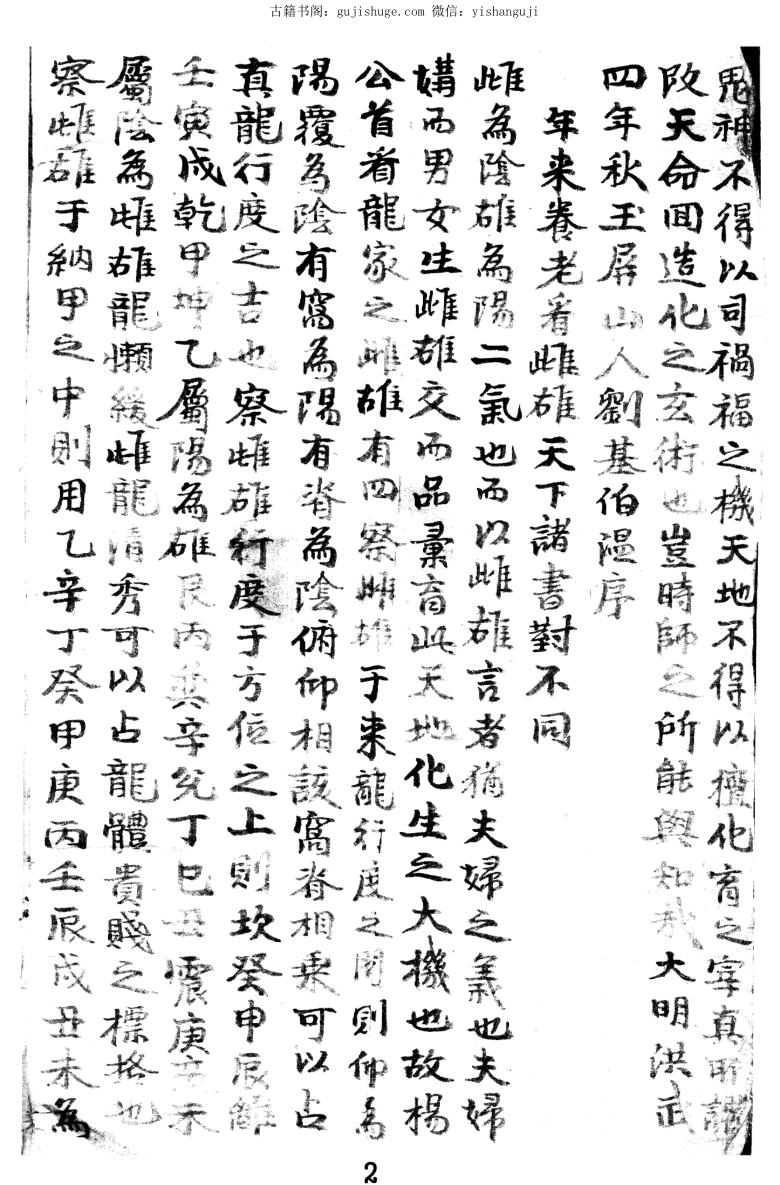 古籍书阁：gujishuge.com 微信：yishanguji
鬼神不得以司禍福之機天地不得以擅化育之宰真所謂
改天命囬造化之玄術也豈時師之所能與知哉大明洪武
四年秋玉屏山人劉基伯温序
年来養老看雌雄天下諸書對不同
雌為陰雄為陽二氣也而以雌雄言者猶夫婦之義也夫婦
媾而男女生雌雄交而品彙育此天地化生之大機也故楊
公首看龍家之雌雄有四察雌雄于来龍行度之間則仰為
陽覆為陰有窩為陽有脊為陰俯仰相該窩脊相乘可以占
真龍行度之吉也察雌雄行度于方位之上則坎癸申辰離
壬寅戌乾甲坤乙屬陽為雄艮丙巽辛兊丁巳丑震庚亥未
屬陰為雌雄龍懶緩雌龍清秀可以占龍體貴賤之標格也
察雌雄于納甲之中則用乙辛丁癸甲庚丙壬辰戌丑未為
2